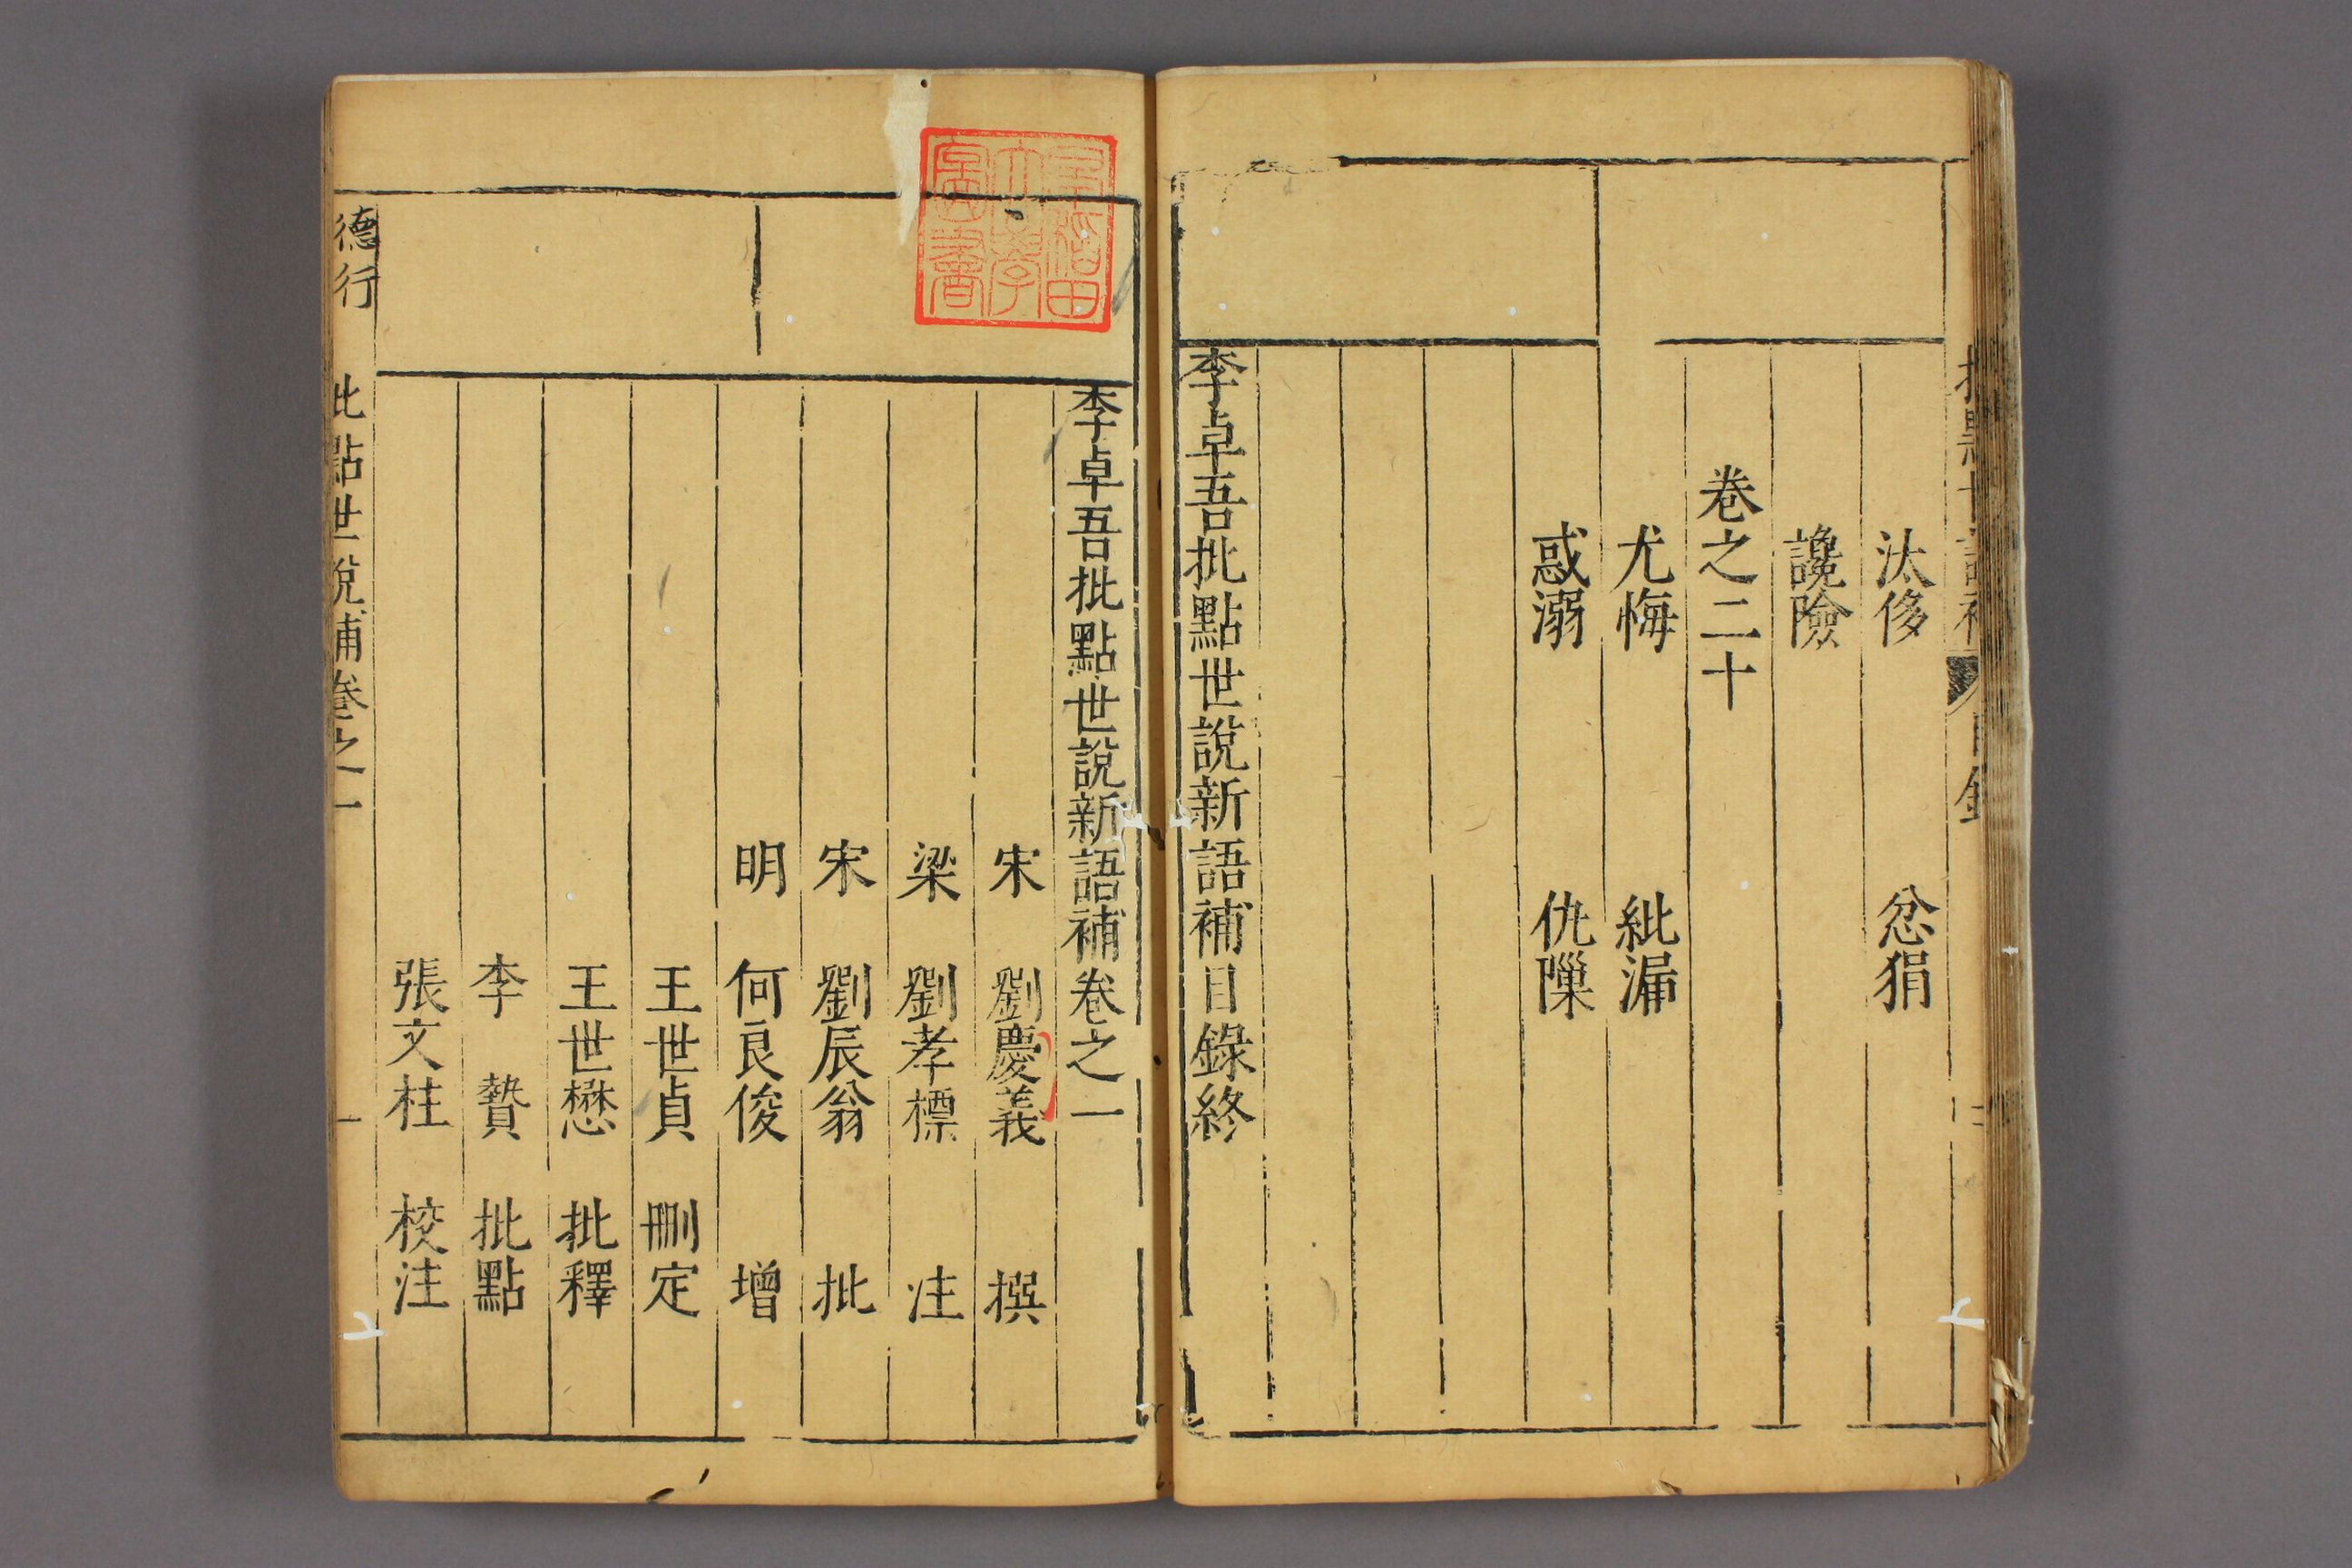 汰侈 忿狷
讒險
卷之二十
尤悔 紕漏
惑溺 仇隟
李卓吾批點世說新語補目錄終
早稻田
大學
圖書
李卓吾批點世說新語補卷之一
宋 劉慶義 撰
梁 劉孝標 注
宋 劉辰翁 批
明 何良俊 增
王世貞 刪定
王世懋 批釋
李贄 批點
張文柱 校注
德行 批點世說補卷之一 一